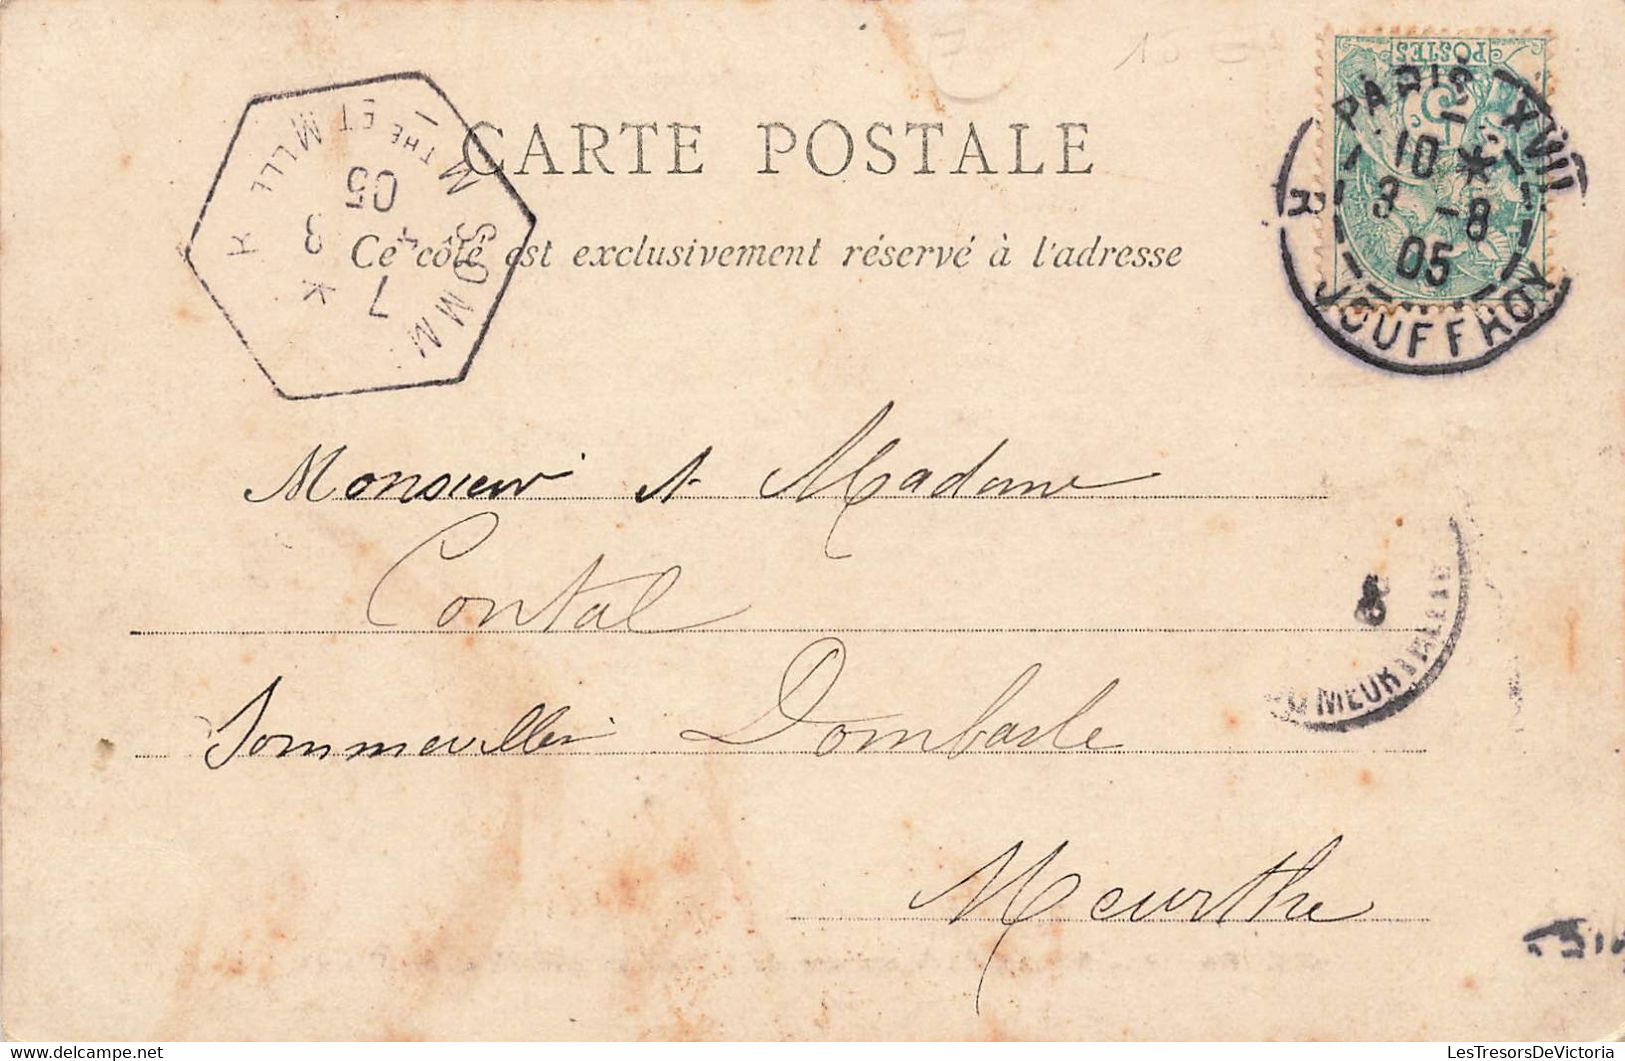 CARTE POSTALE
Ce côté est exclusivement réservé à l'adresse
POSTES
5
PARIS XVII
10 *
3 -8
05
R. JOUFFROY
SOMM
7 *
3
05
MTHE ET MLLE
Monsieur et Madame
Contal
Sommerviller Dombasle
Meurthe
LesTresorsDeVictoria